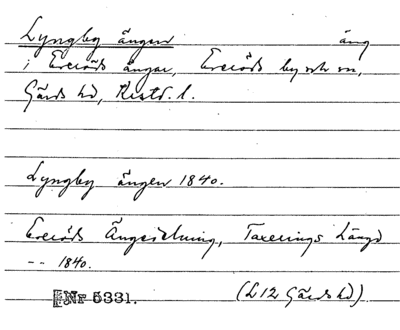 Lyngby ängen äng
i Everöds ängar, Everöds by och sn,
Gärds hd, Krstd. l.
Lyngby ängen 1840.
Everöds Ängsdelning, Taxerings Längd
-- 1840.
Nr 5331. (L12 Gärds hd)